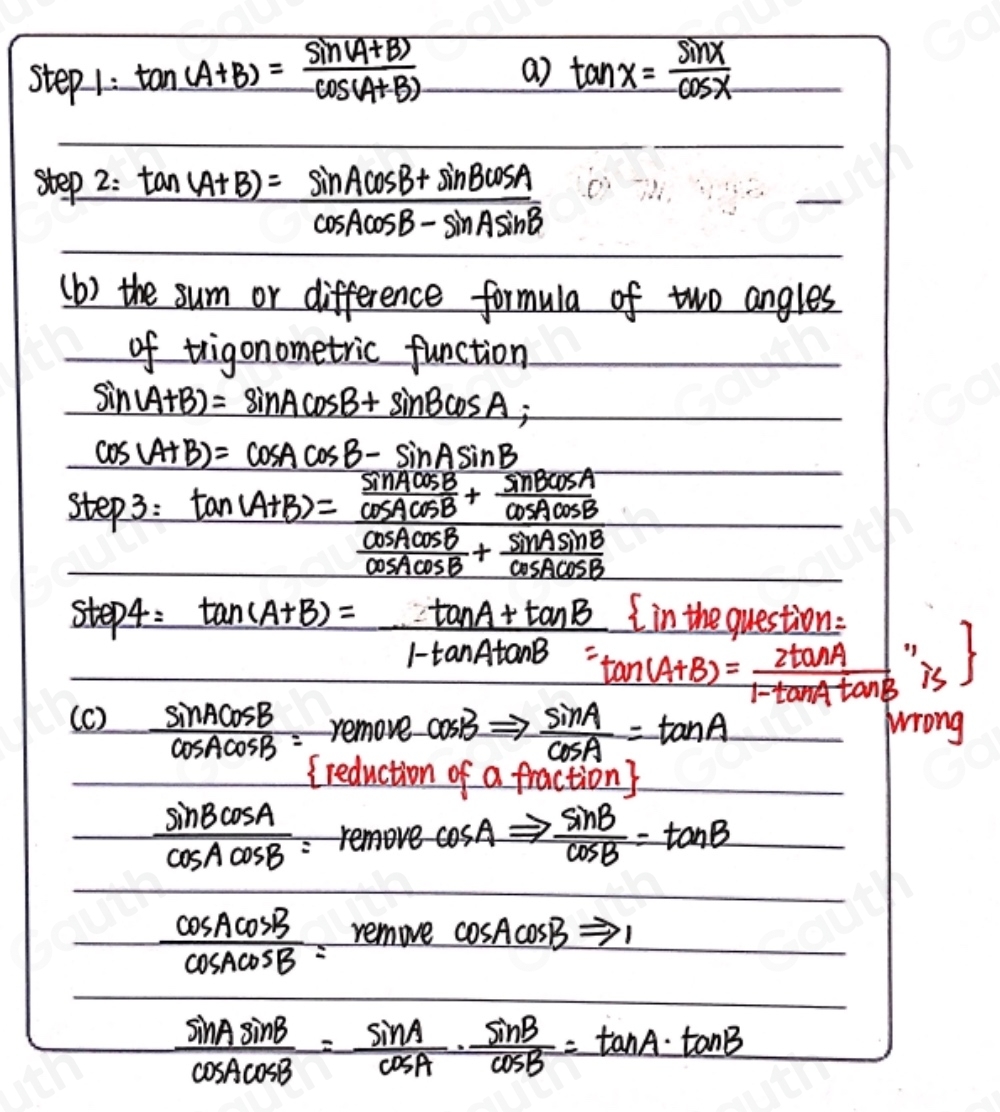 Step 1: tan(A+B) = sin(A+B)/cos(A+B) a) tanx = sinx/cosx
Step 2: tan(A+B) = (sinAcosB + sinBcosA)/(cosAcosB - sinAsinB)
(b) the sum or difference formula of two angles
of trigonometric function
sin(A+B) = sinAcosB + sinBcosA;
cos(A+B) = cosAcosB - sinAsinB
Step 3: tan(A+B) = (sinAcosB/cosAcosB + sinBcosA/cosAcosB)/(cosAcosB/cosAcosB + sinAsinB/cosAcosB)
Step 4: tan(A+B) = (tanA + tanB)/(1-tanAtanB) {in the question:
"tan(A+B) = 2tanA/(1-tanAtanB)" is wrong}
(c) sinAcosB/cosAcosB = remove cosB ⇒ sinA/cosA = tanA
{reduction of a fraction}
sinBcosA/cosAcosB = remove cosA ⇒ sinB/cosB = tanB
cosAcosB/cosAcosB = remove cosAcosB ⇒ 1
sinAsinB/cosAcosB = sinA/cosA · sinB/cosB = tanA · tanB
Gauth